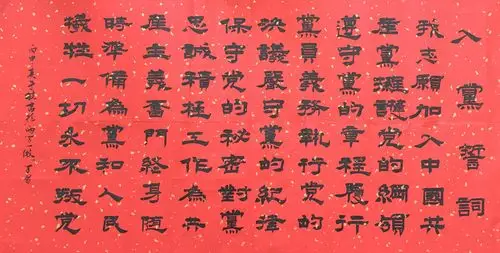 入黨誓詞
我志願加入中國共
產黨擁護党的綱領
遵守黨的章程履行
黨員義務執行党的
決議嚴守黨的紀律
保守党的秘密對黨
忠誠積極工作為共
產主義奮鬥終身随
時準備為黨和人民
犧牲一切永不叛党
丙申